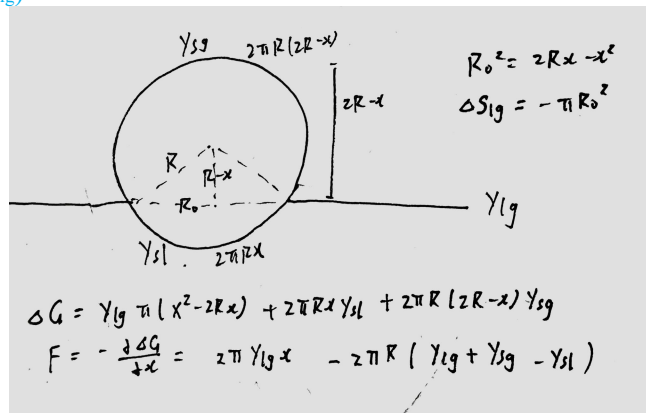 lg)
γsg 2πR(2R-x)
R₀² = 2Rx - x²
2R-x
ΔSlg = -πR₀²
R
R-x
R₀
γlg
γsl . 2πRx
ΔG = γlg π(x²-2Rx) + 2πRx γsl + 2πR(2R-x) γsg
F = - ∂ΔG/∂x = 2π γlg x - 2πR ( γlg + γsg - γsl )